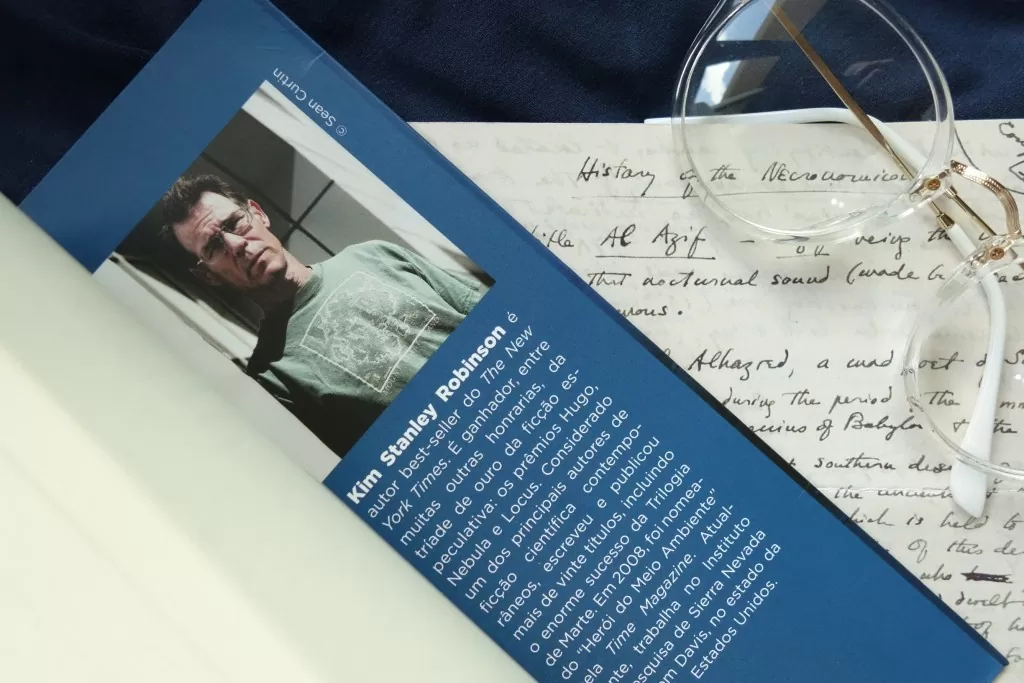 © Sean Curtin
Kim Stanley Robinson é
autor best-seller do The New
York Times. É ganhador, entre
muitas outras honrarias, da
tríade de ouro da ficção es-
peculativa: os prêmios Hugo,
Nebula e Locus. Considerado
um dos principais autores de
ficção científica contempo-
râneos, escreveu e publicou
mais de vinte títulos, incluindo
o enorme sucesso da Trilogia
de Marte. Em 2008, foi nomea-
do "Herói do Meio Ambiente"
ela Time Magazine. Atual-
nte, trabalha no Instituto
esquisa de Sierra Nevada
em Davis, no estado da
Estados Unidos.
History of the Necronomicon
Al Azif —
that nocturnal sound (made by
Alhazred, a mad
during the period
of Babylon & the
southern
the
which is held to
Of this
who